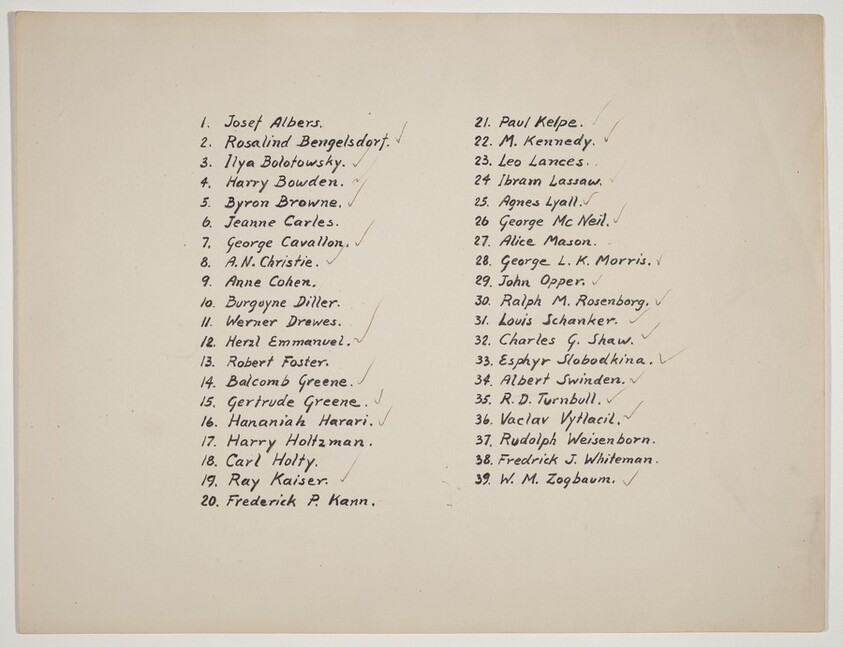 1. Josef Albers.
2. Rosalind Bengelsdorf.
3. Ilya Bolotowsky.
4. Harry Bowden.
5. Byron Browne.
6. Jeanne Carles.
7. George Cavallon.
8. A.N. Christie.
9. Anne Cohen.
10. Burgoyne Diller.
11. Werner Drewes.
12. Herzl Emmanuel.
13. Robert Foster.
14. Balcomb Greene.
15. Gertrude Greene.
16. Hananiah Harari.
17. Harry Holtzman.
18. Carl Holty.
19. Ray Kaiser.
20. Frederick P. Kann.
21. Paul Kelpe.
22. M. Kennedy.
23. Leo Lances.
24 Ibram Lassaw.
25. Agnes Lyall.
26 George Mc Neil.
27. Alice Mason.
28. George L. K. Morris.
29. John Opper.
30. Ralph M. Rosenborg.
31. Louis Schanker.
32. Charles G. Shaw.
33. Esphyr Slobodkina.
34. Albert Swinden.
35. R. D. Turnbull.
36. Vaclav Vytlacil.
37. Rudolph Weisenborn.
38. Fredrick J. Whiteman.
39. W. M. Zogbaum.